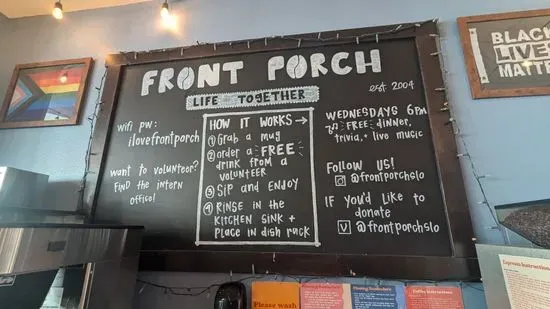 FRONT PORCH
est 2004
LIFE TOGETHER
wifi pw:
ilovefrontporch
want to volunteer?
FIND the intern
office!
HOW IT WORKS →
1 Grab a mug
2 order a FREE
drink from a
volunteer
3 Sip and ENJOY
4 RINSE IN the
KITCHEN SINK +
Place in dish rack
WEDNESDAYS 6PM
FREE dinner,
trivia, + live music
FOLLOW US!
@frontporchslo
IF YOU'd LIKE to
donate
V @frontporchslo
BLACK
LIVES
MATTER
Please wash
Espresso Instructions